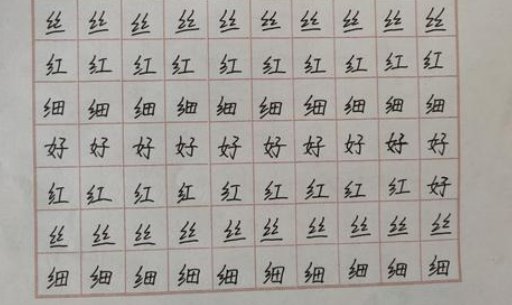 丝丝丝丝丝丝丝丝丝丝
红红红红红红红红红红
细细细细细细细细细细
好好好好好好好好好好
红红红红红红红红红好
丝丝丝丝丝丝丝丝丝丝
细细细细细细细细细细